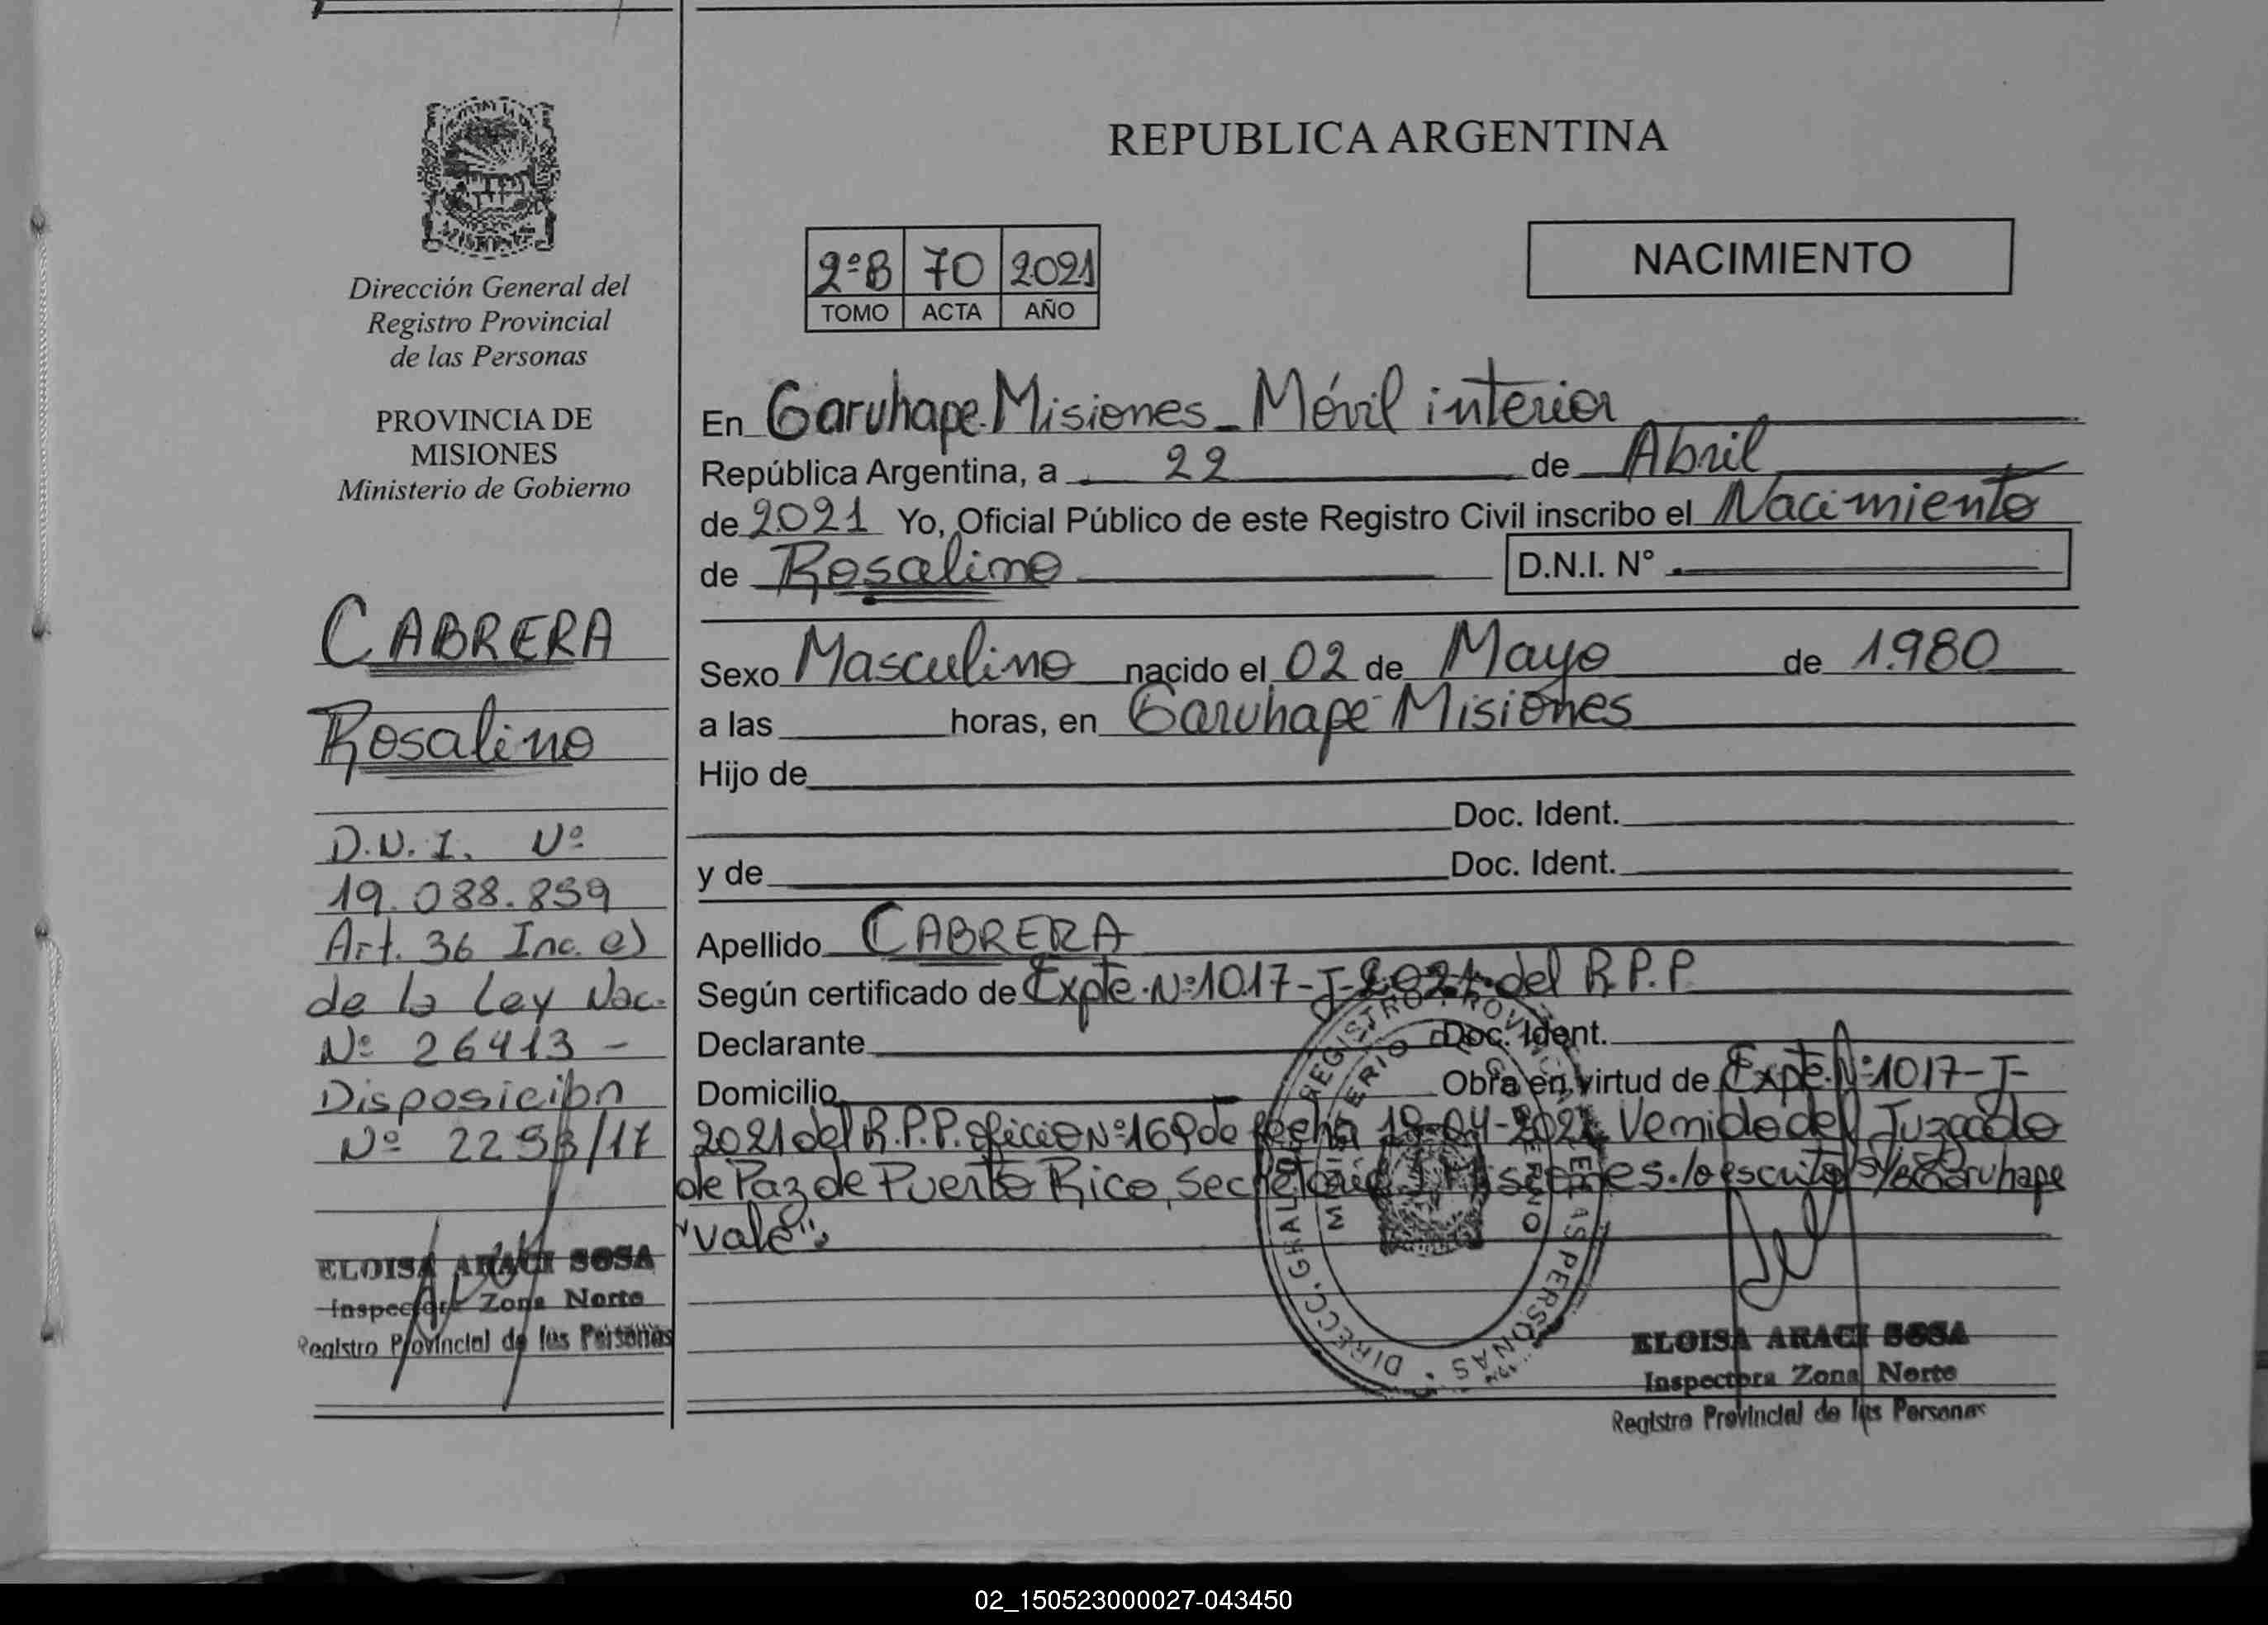 REPUBLICA ARGENTINA
NACIMIENTO
2ºB 70 2021
TOMO ACTA AÑO
Dirección General del
Registro Provincial
de las Personas
PROVINCIA DE
MISIONES
Ministerio de Gobierno
CABRERA
Rosalino
D.N.I. Nº
19.088.859
Art. 36 Inc. e)
de la Ley Nac.
Nº 26413 -
Disposición
Nº 2253/17
ELOISA ARACI SOSA
Inspectora Zona Norte
Registro Provincial de las Personas
En Garuhape-Misiones_Móvil interior
República Argentina, a 22 de Abril
de 2021 Yo, Oficial Público de este Registro Civil inscribo el Nacimiento
de Rosalino D.N.I. Nº
Sexo Masculino nacido el 02 de Mayo de 1.980
a las horas, en Garuhape-Misiones
Hijo de
Doc. Ident.
y de Doc. Ident.
Apellido CABRERA
Según certificado de Expte.Nº1017-J-2021-del R.P.P
Declarante Doc. Ident.
Domicilio Obra en virtud de Expte.Nº1017-J-
2021 del R.P.P. oficio Nº169 de fecha 19-04-2021 Venido del Juzgado
de Paz de Puerto Rico, Secretaría 1 Misiones. lo escrito s/r Garuhape
"vale".
DIRECC. GRAL. REGISTRO PROVINCIAL DE LAS PERSONAS
MINISTERIO DE GOBIERNO
ELOISA ARACI SOSA
Inspectora Zona Norte
Registro Provincial de las Personas
02_150523000027-043450